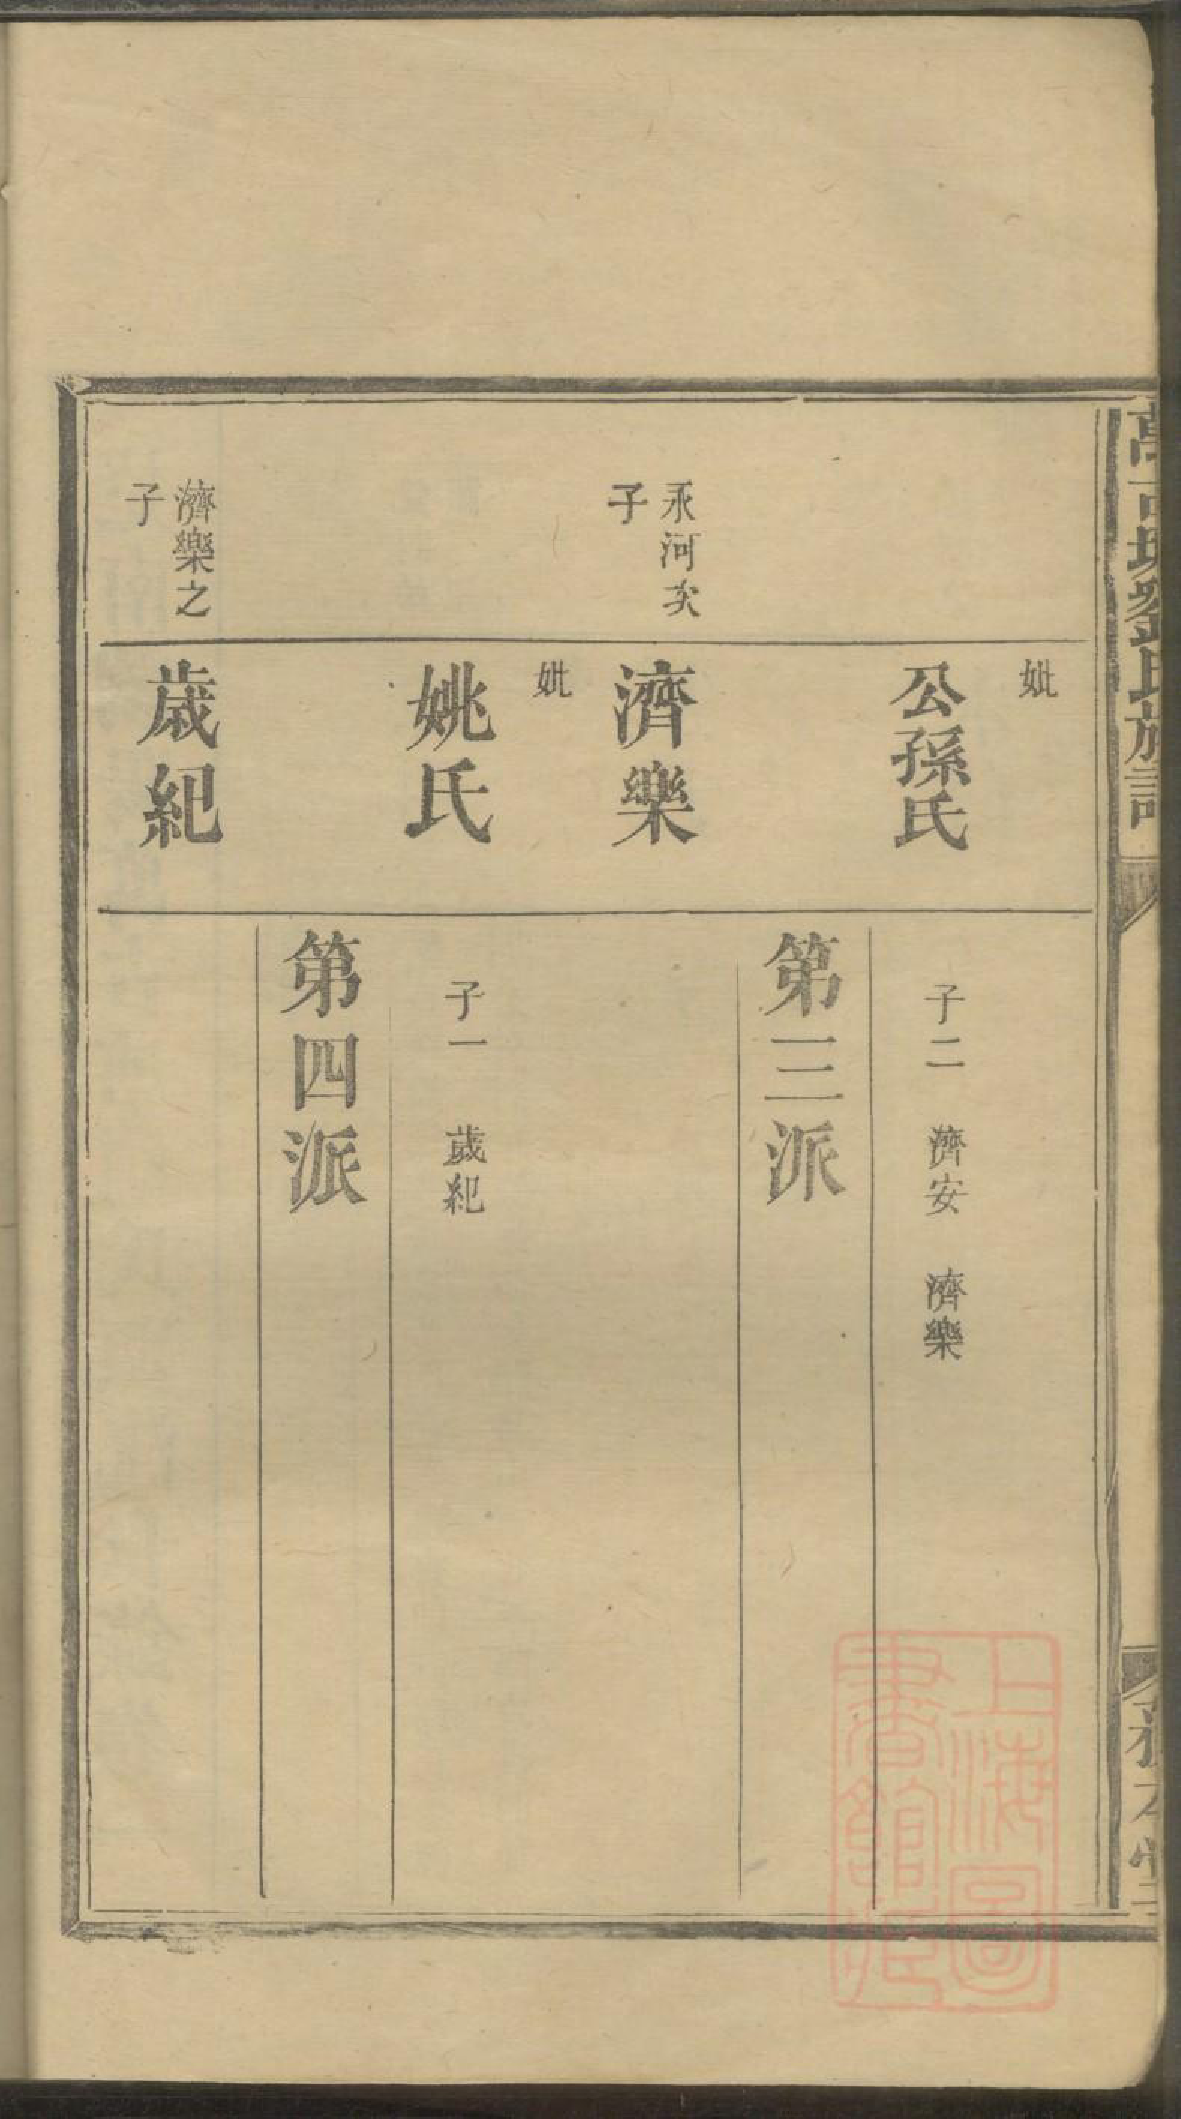 妣
公孫氏
子二 濟安 濟樂
第三派
永河次
子
濟樂
妣
姚氏
子一 歲紀
第四派
濟樂之
子
歲紀
劉氏族譜
上海圖
書館藏